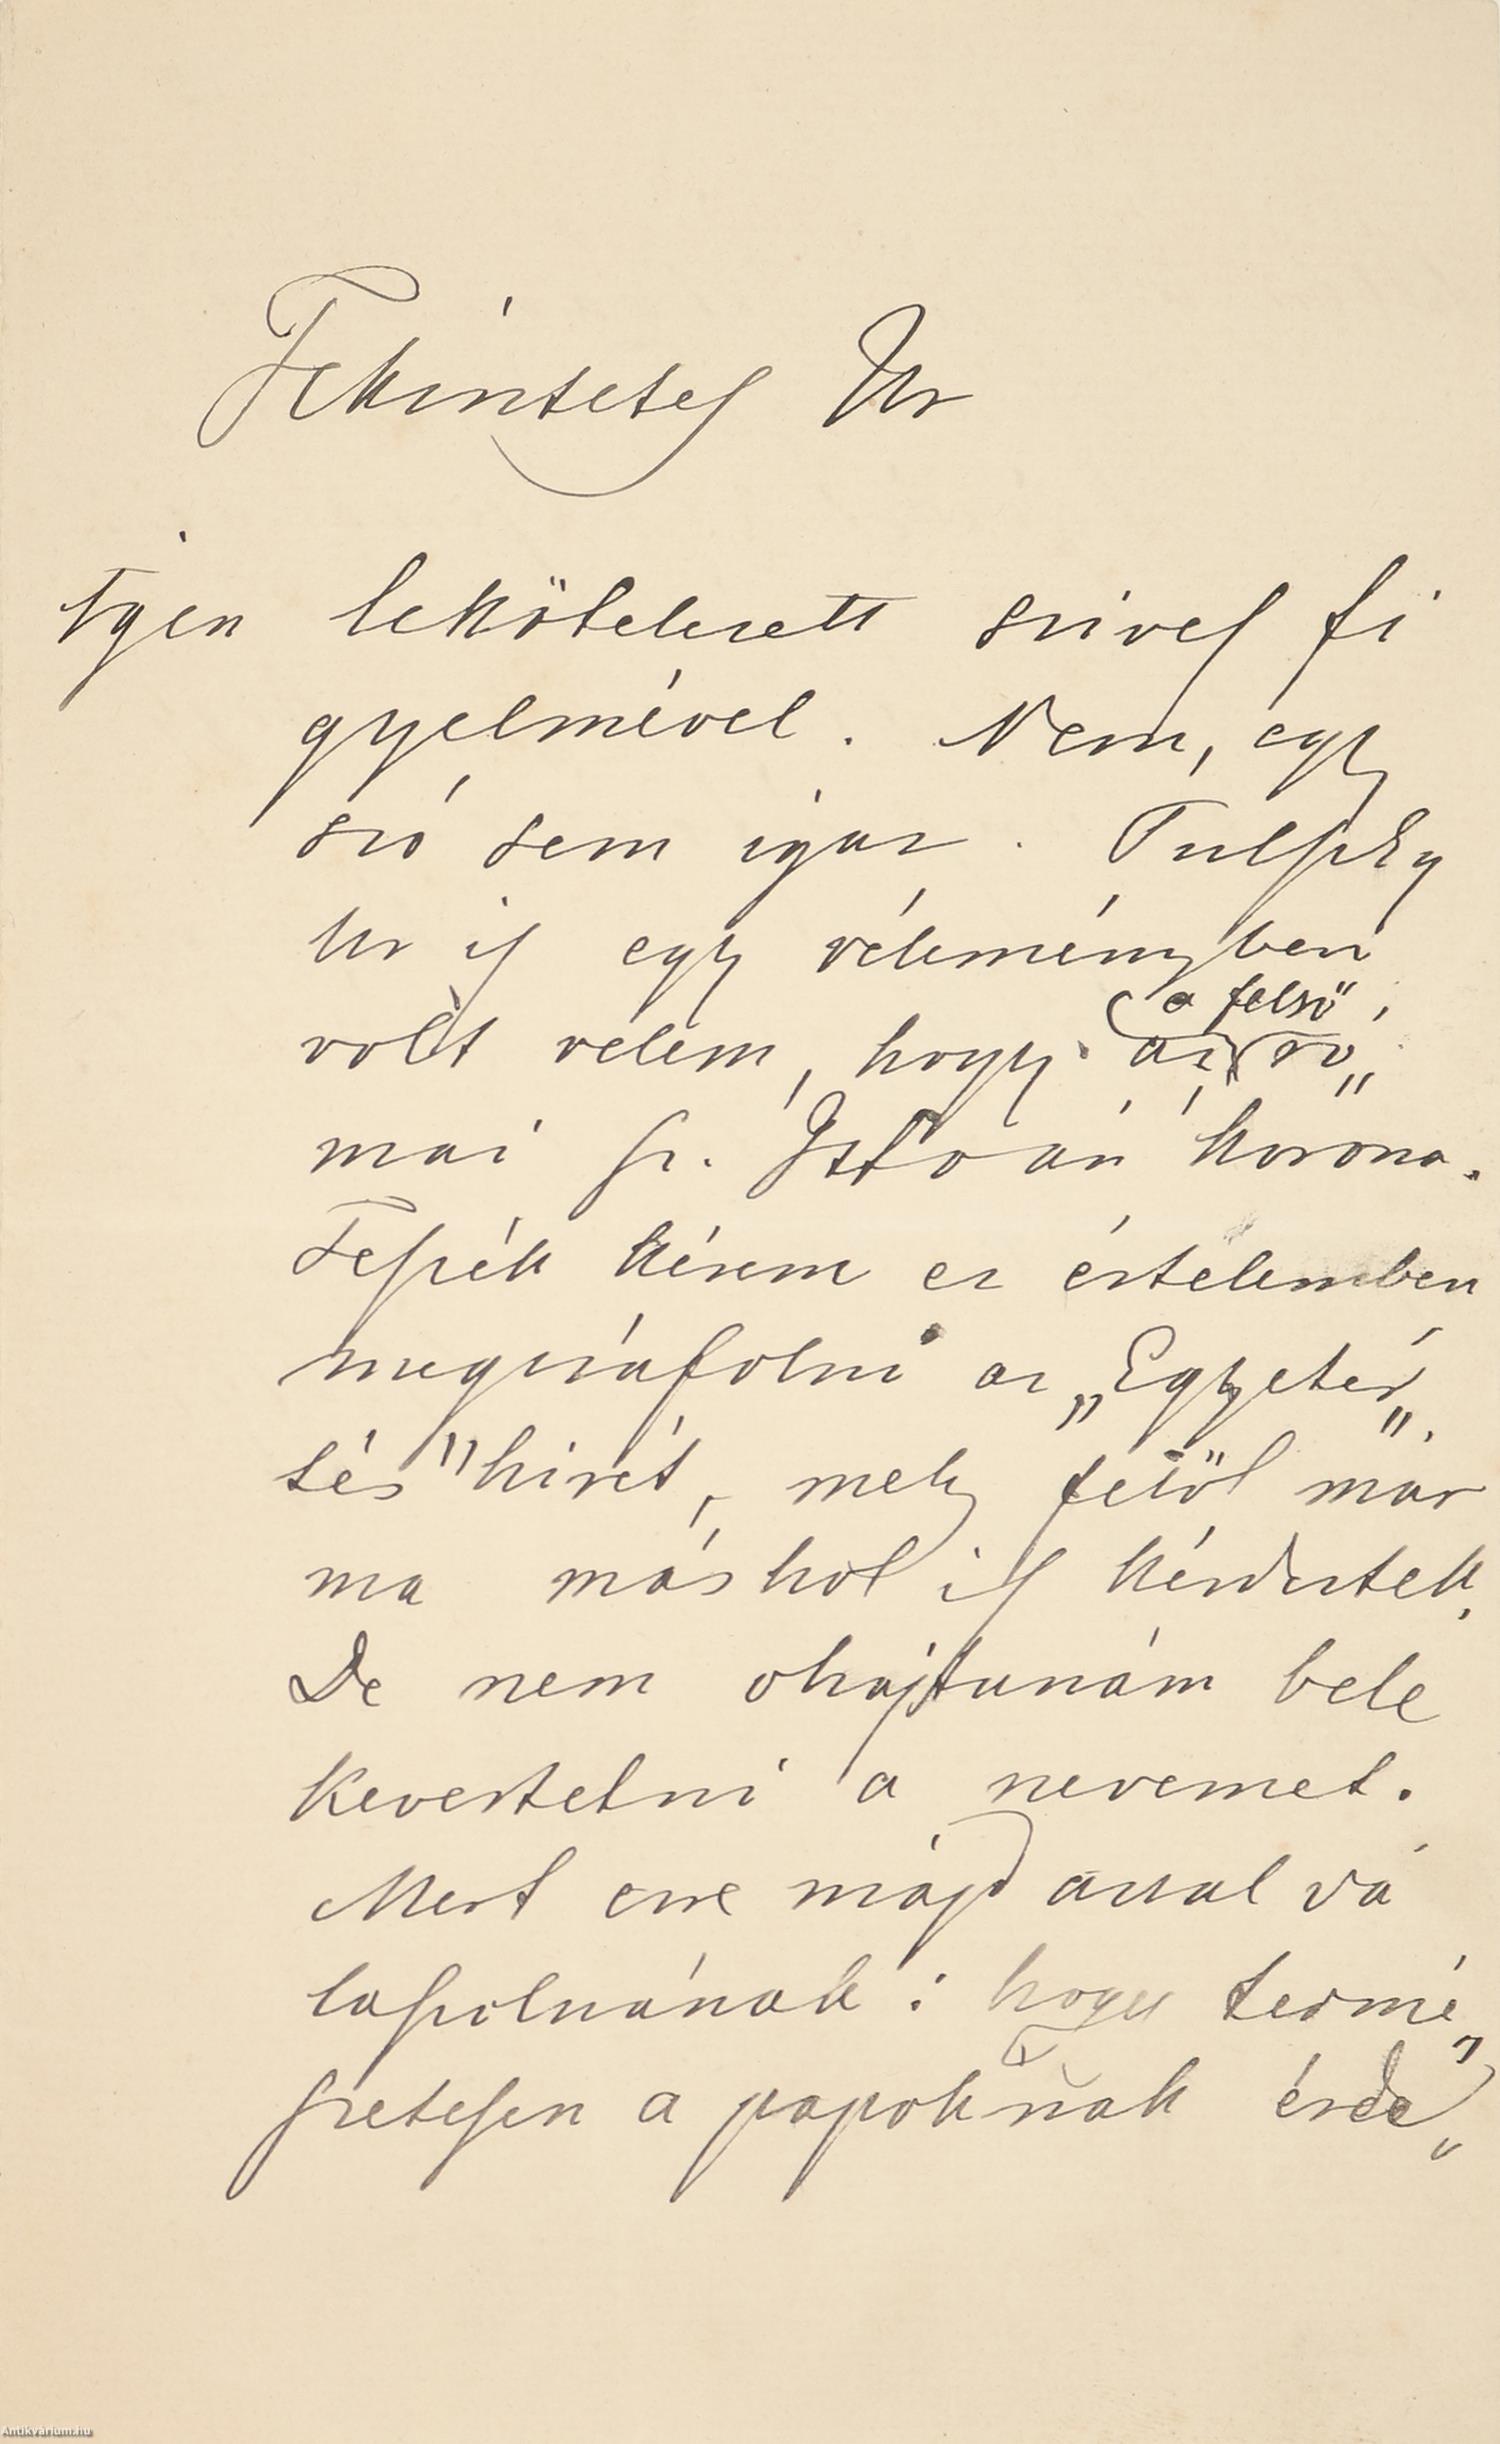 Tekintetes Ur
Igen lekötelezett szives fi
gyelmével. Nem, egy
szó sem igaz. Pulszky
Ur is egy véleményben
volt velem, hogy az ró„
a felső
mai sz. István korona.
Teszék kérem ez értelemben
megczáfolni az „Egyetér„
tés" hirét, mely felöl már
ma máshol is kérdeztek.
De nem ohajtanám bele
kevertetni a nevemet.
Mert erre majd azzal vá
laszolnának: hogy termé„
szetesen a papoknak érde„
Antikvárium.hu